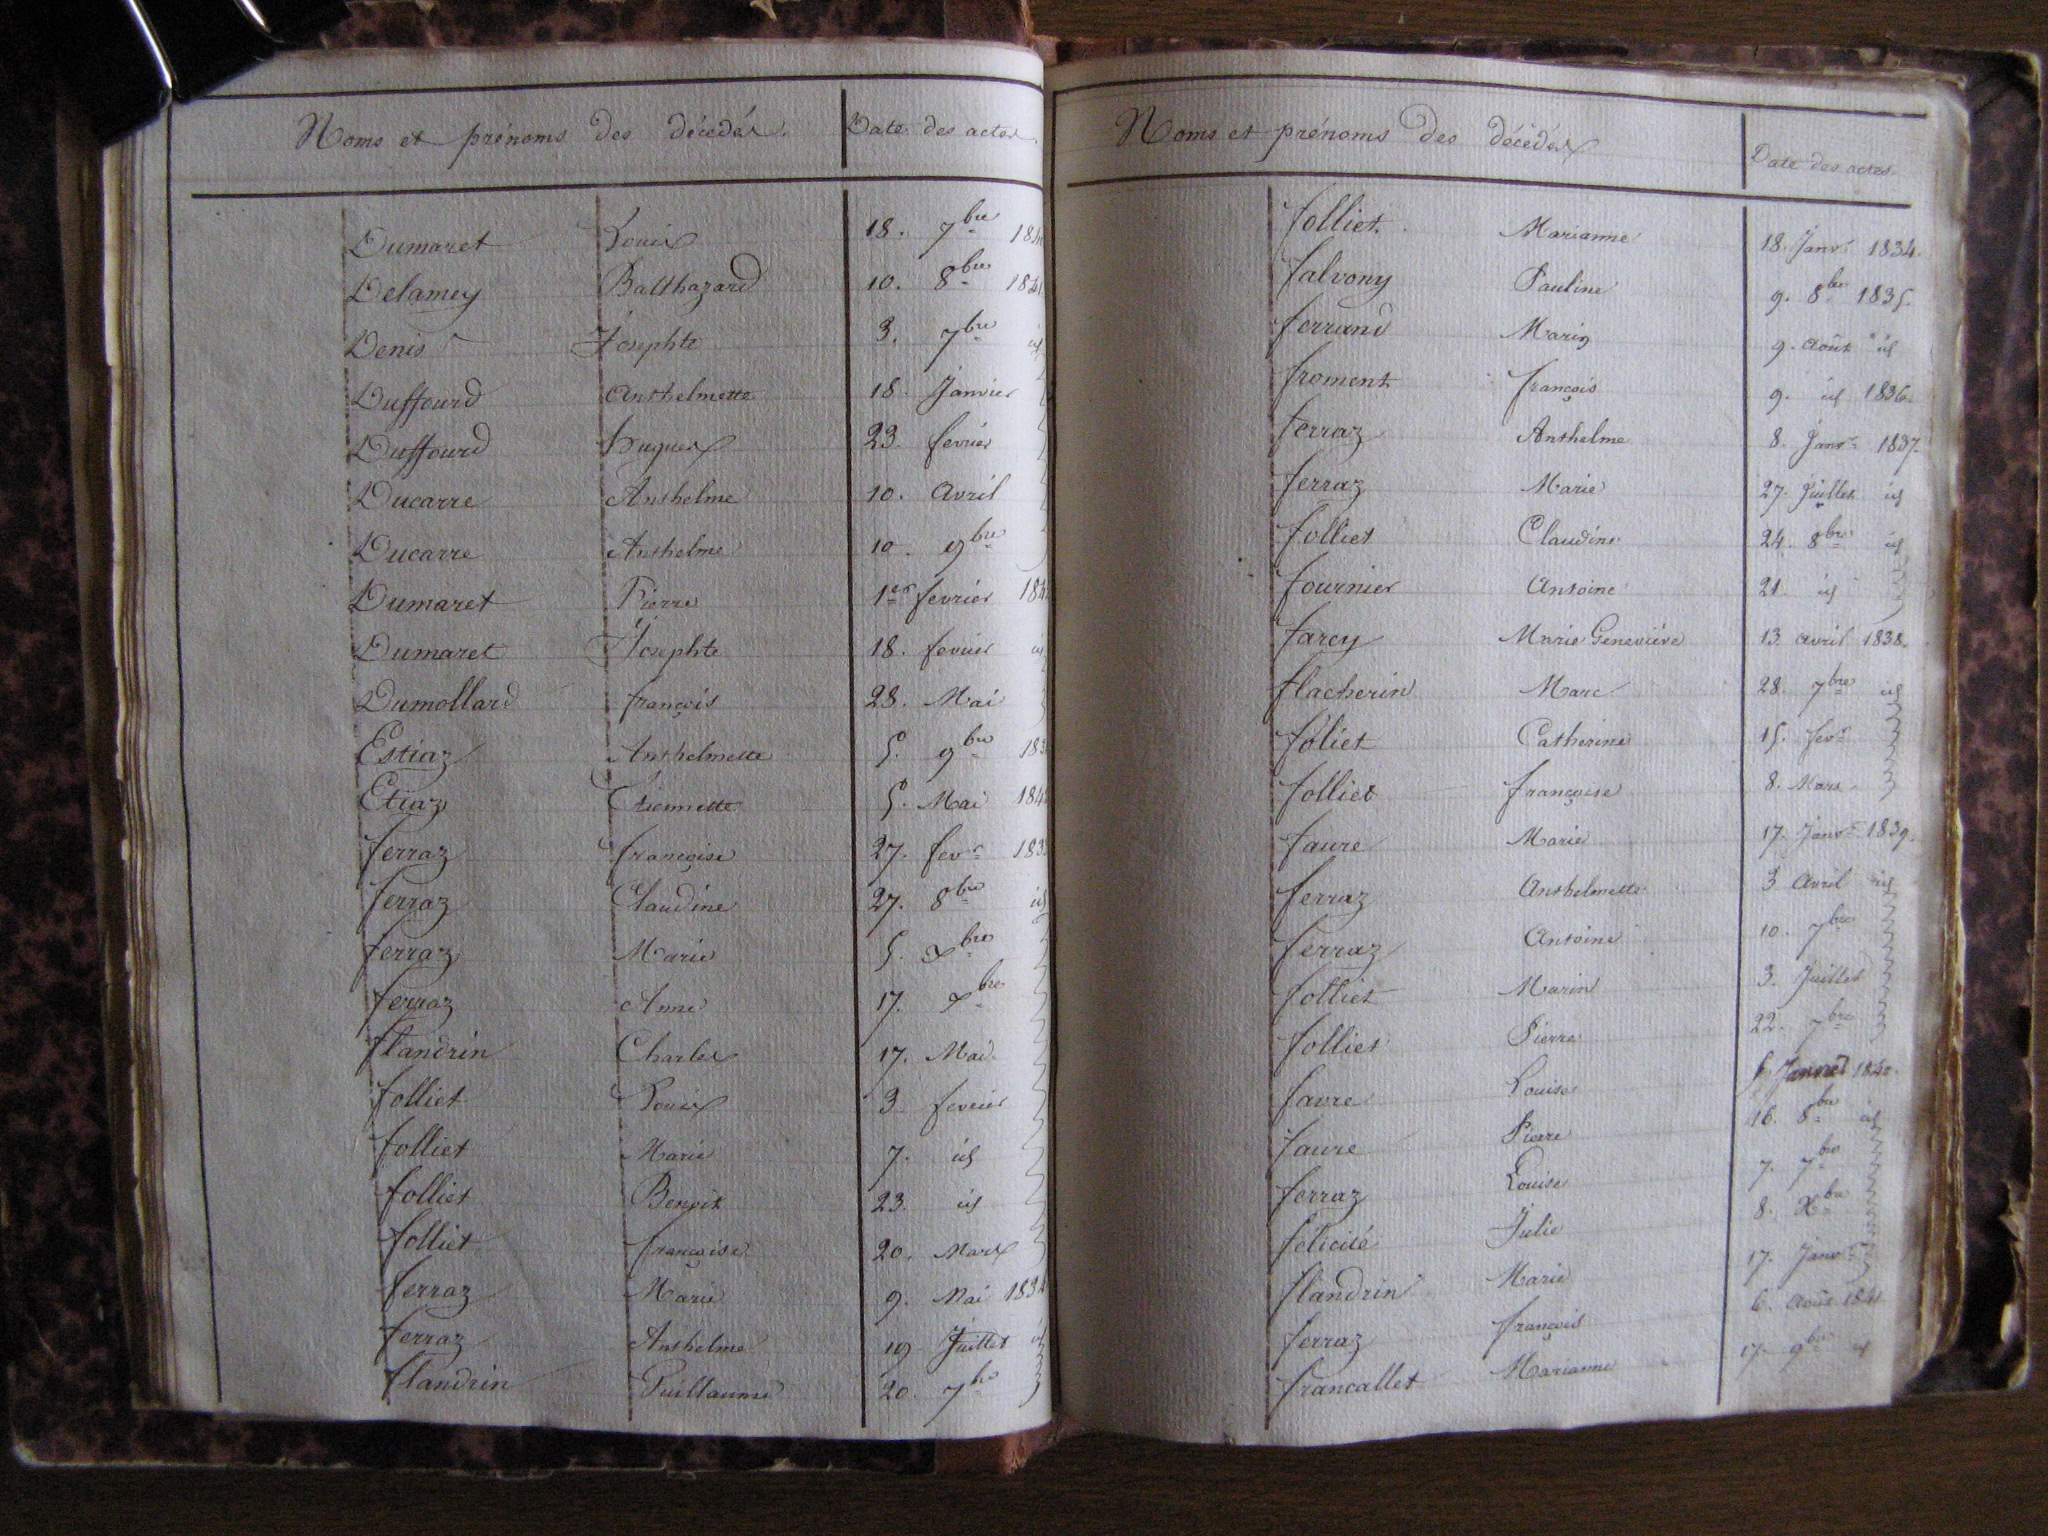 Noms et prénoms des décédés. Date des actes.
Dumaret Louis 18. 7bre
Delamey Balthazard 10. 8bre 1841
Denis Josephte 3. 7bre id
Duffourd Anthelmette 18. Janvier
Duffourd Hugues 23. fevrier
Ducarre Anthelme 10. Avril
Ducarre Anthelme 10. 9bre
Dumaret Pierre 1er fevrier
Dumaret Josephte 18. fevrier id
Dumollard françois 28. Mai
Estiaz Anthelmette 5. 9bre
Etiaz Etiennette 5. Mai
ferraz françoise 27. fevr
ferraz Claudine 27. 8bre id
ferraz Marie 5. Xbre
ferraz Anne 17. Xbre
flandrin Charles 17. Mai.
folliet Louis 3 fevrier
folliet Marie 7. id
folliet Benoit 23. id
folliet françoise 20. Mars
ferraz Marie 9. Mai 1834
ferraz Anthelme 19 Juillet id
flandrin Guillaume 20. 7bre
Noms et prénoms des décédés Date des actes.
folliet. Marianne 18. Janvr 1834.
falvony Pauline 9. 8bre 1835.
ferrand Marin 9. Août id
froment françois 9. id 1836.
ferraz Anthelme 8. Janvr 1837.
ferraz Marie 27. Juillet id
folliet Claudine 24. 8bre id
fournier Antoine 21 id
farcy Marie Geneviève 13. avril 1838.
flacherin Marc 28. 7bre id
foliet Catherine 15. fevr
folliet françoise 8. Mars
faure Marie 17. Janvr 1839.
ferraz Anthelmette 3 Avril id
ferraz Antoine 10. 7bre
folliet Marin 3. Juillet
folliet Pierre 22. 7bre
favre Louise Janvier 1840.
faure Pierre 16. 8bre id
ferraz Louise 7. 7bre
félicité Julie 8. Xbre
flandrin Marie 17. Janvr
ferraz françois 6. Août 1841
francallet Marianne 17. 9bre id